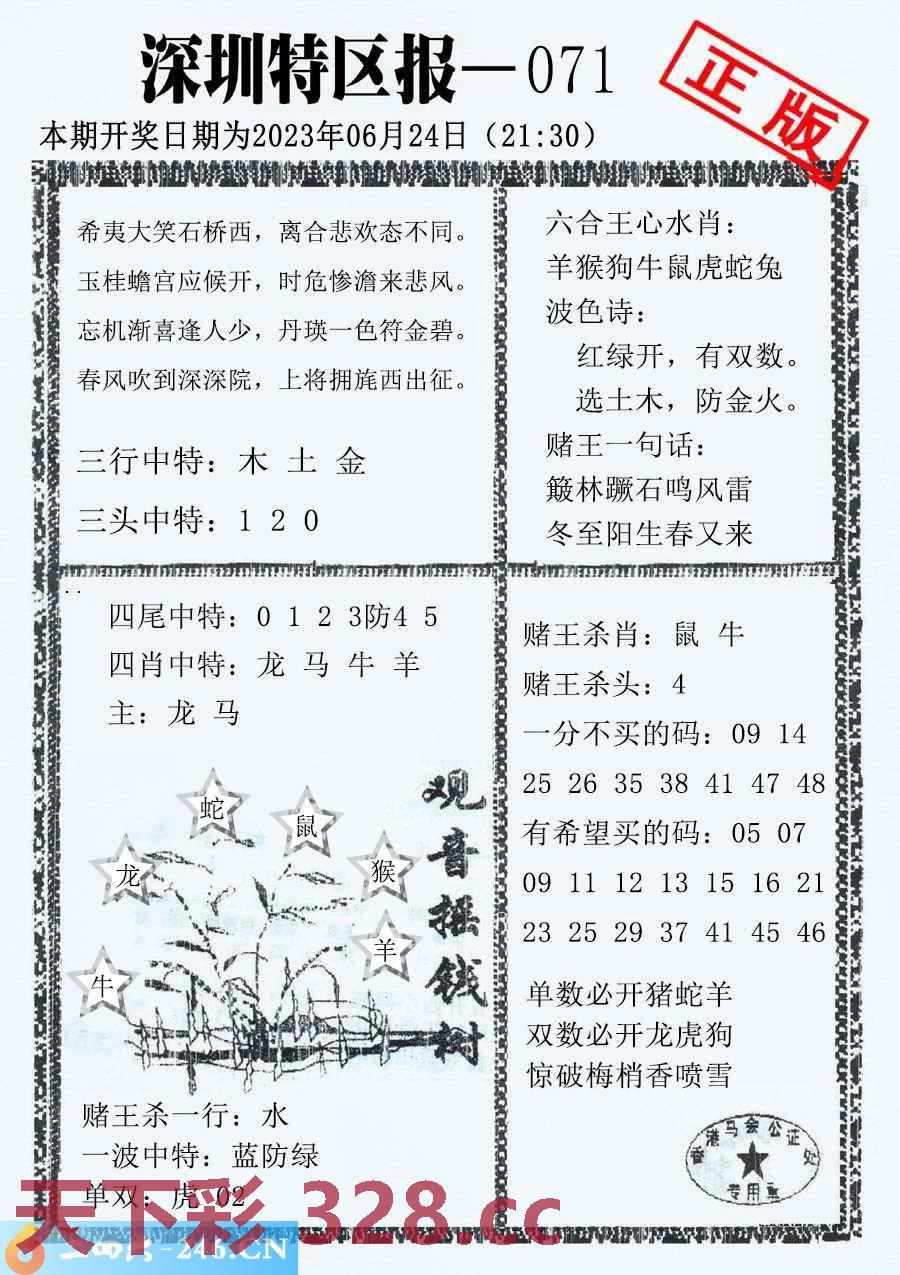 深圳特区报—071
正版
本期开奖日期为2023年06月24日（21:30）
希夷大笑石桥西，离合悲欢态不同。
玉桂蟾宫应候开，时危惨澹来悲风。
忘机渐喜逢人少，丹瑛一色符金碧。
春风吹到深深院，上将拥旄西出征。
三行中特：木 土 金
三头中特：1 2 0
六合王心水肖：
羊猴狗牛鼠虎蛇兔
波色诗：
红绿开，有双数。
选土木，防金火。
赌王一句话：
簸林蹶石鸣风雷
冬至阳生春又来
四尾中特：0 1 2 3防4 5
四肖中特：龙 马 牛 羊
主：龙 马
蛇
鼠
龙
猴
羊
牛
观音摇钱树
赌王杀一行：水
一波中特：蓝防绿
单双：虎 02
赌王杀肖：鼠 牛
赌王杀头：4
一分不买的码：09 14
25 26 35 38 41 47 48
有希望买的码：05 07
09 11 12 13 15 16 21
23 25 29 37 41 45 46
单数必开猪蛇羊
双数必开龙虎狗
惊破梅梢香喷雪
香港马会公证处
专用章
天下彩 328.cc
-246.CN